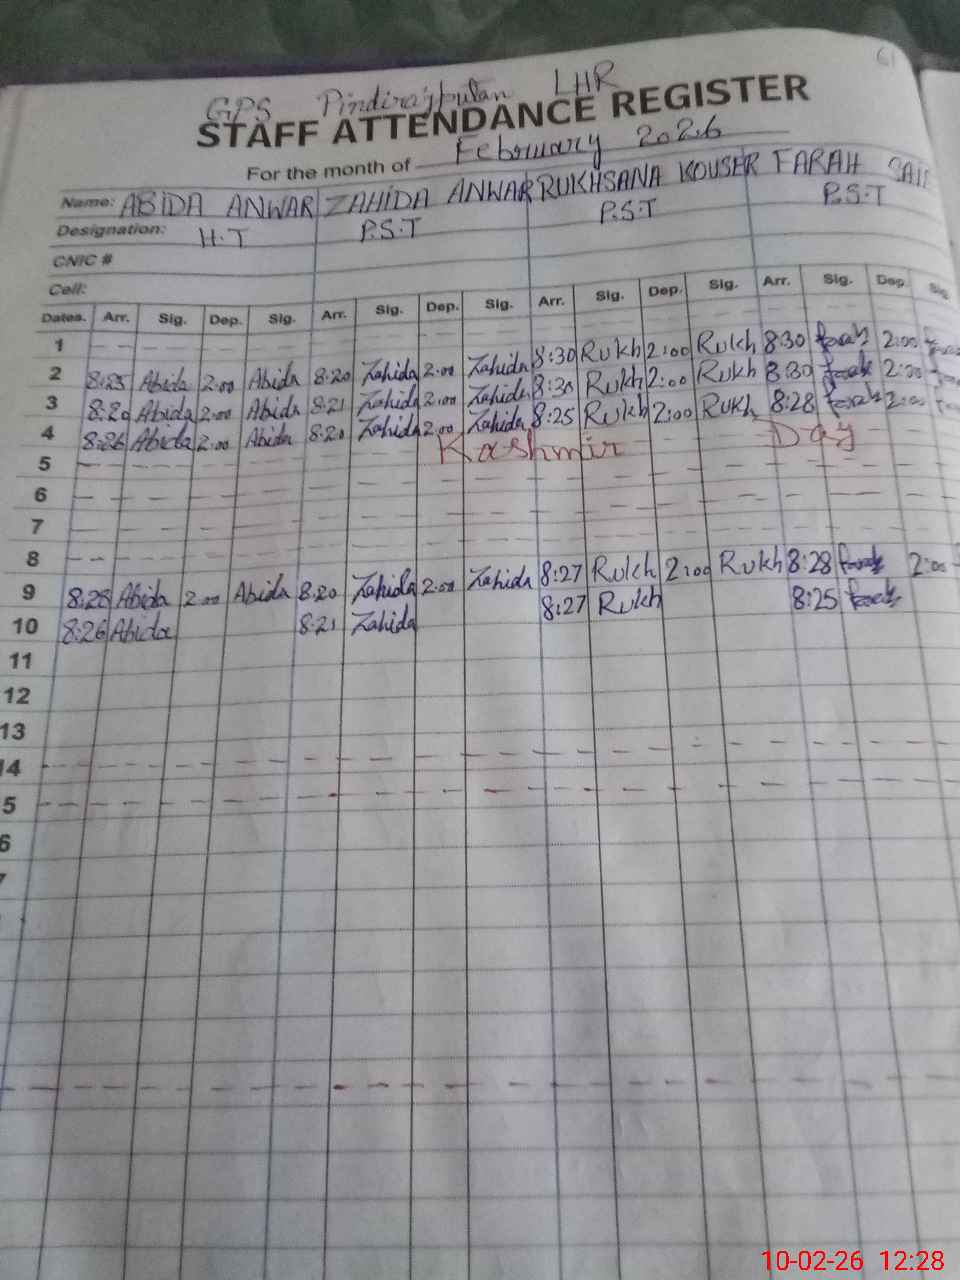 61
GPS Pindirajputan LHR
STAFF ATTENDANCE REGISTER
For the month of February 2026
Name: ABIDA ANWAR ZAHIDA ANWAR RUKHSANA KOUSER FARAH
Designation: H.T P.S.T P.S.T P.S.T
CNIC #
Cell:
Dates. Arr. Sig. Dep. Sig. Arr. Sig. Dep. Sig. Arr. Sig. Dep. Sig. Arr. Sig. Dep. Sig
1
2 8:25 Abida 2:00 Abida 8:20 Zahida 2:00 Zahida 8:30 Rukh 2:00 Rukh 8:30 farah 2:00
3 8:20 Abida 2:00 Abida 8:21 Zahida 2:00 Zahida 8:30 Rukh 2:00 Rukh 8:30 farah 2:00
4 8:26 Abida 2:00 Abida 8:20 Zahida 2:00 Zahida 8:25 Rukh 2:00 Rukh 8:28 farah 2:00
5 Kashmir Day
6
7
8
9 8:28 Abida 2:00 Abida 8:20 Zahida 2:00 Zahida 8:27 Rukh 2:00 Rukh 8:28 farah 2:00
10 8:26 Abida 8:21 Zahida 8:27 Rukh 8:25 farah
11
12
13
14
5
6
10-02-26 12:28